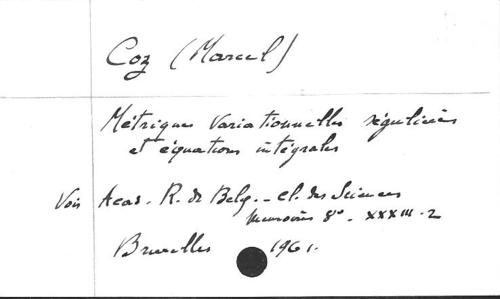 Coz (Marcel)
Métriques variationnelles régulières
et équations intégrales
Voir Acad. R. de Belg. - Cl. des Sciences
Mémoires 8° - XXXIII - 2
Bruxelles 1961.